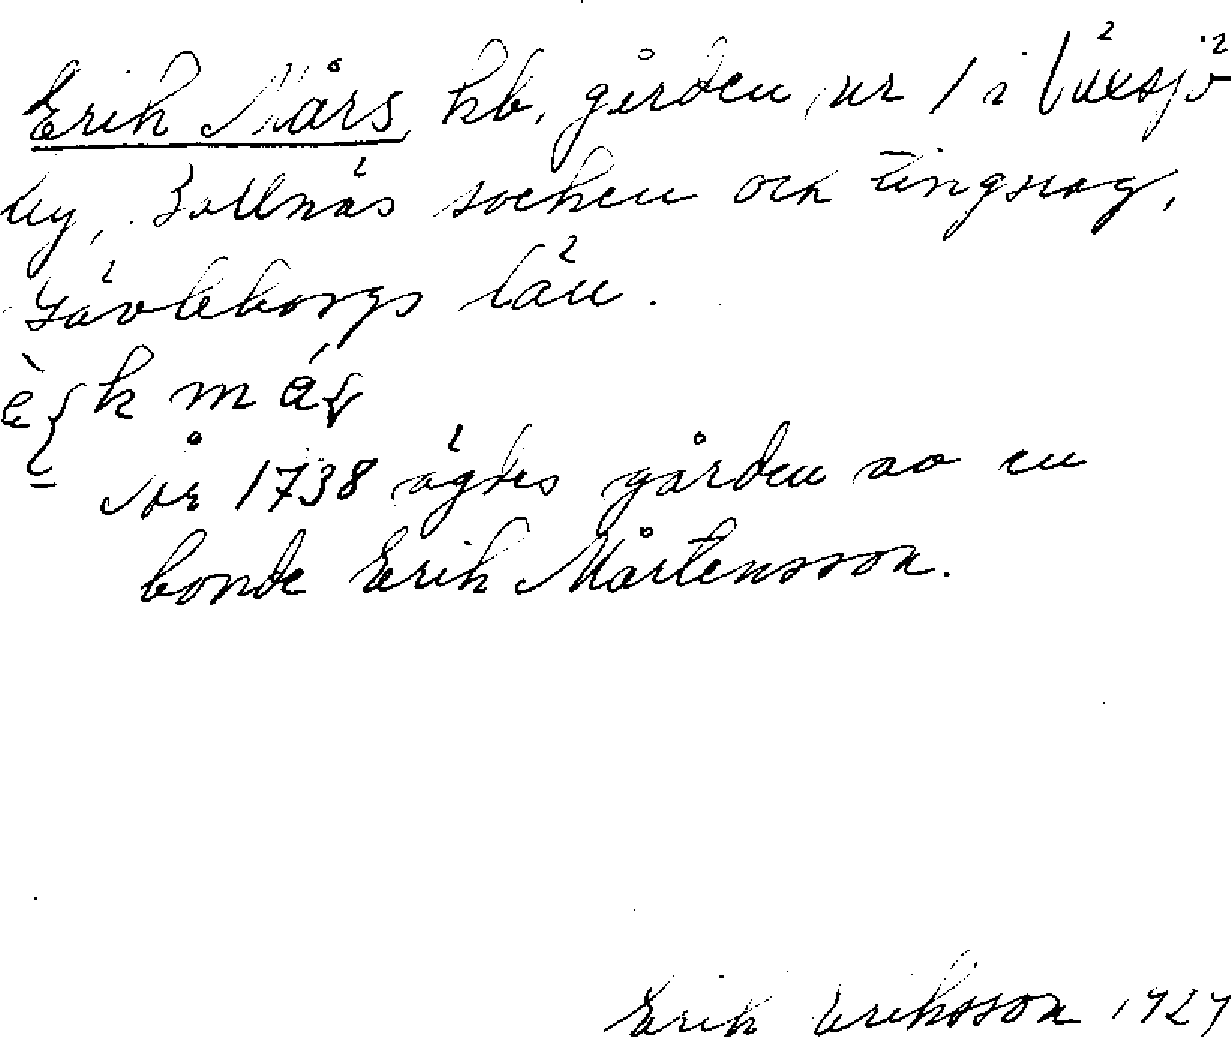 Erik Mårs kb. gården nr 1 i Växsjö
by, Bollnäs socken och tingslag,
Gävleborgs län.
År 1738 ägdes gården av en
bonde Erik Mårtensson.
Erik Eriksson 1927